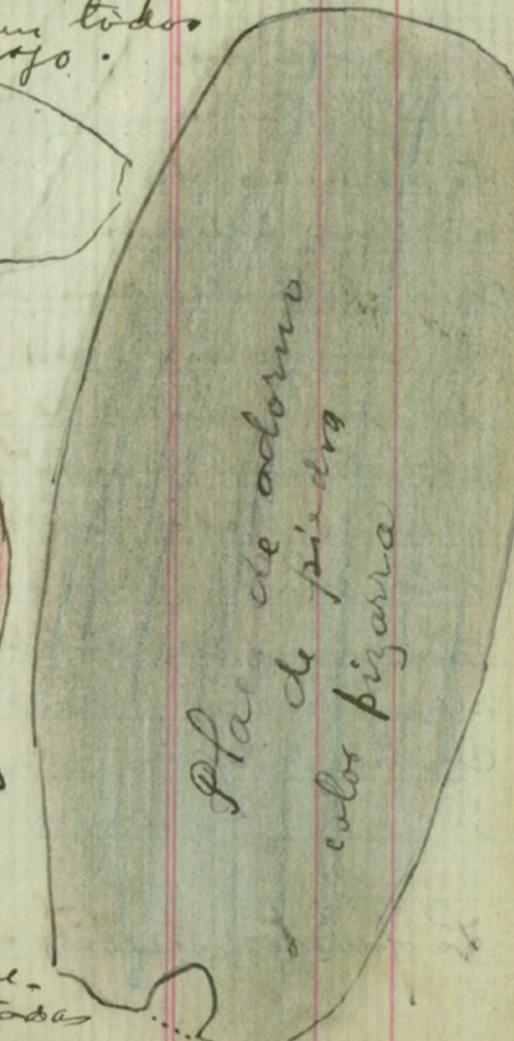 todos
Placa de adorno
de piedra
color pizarra